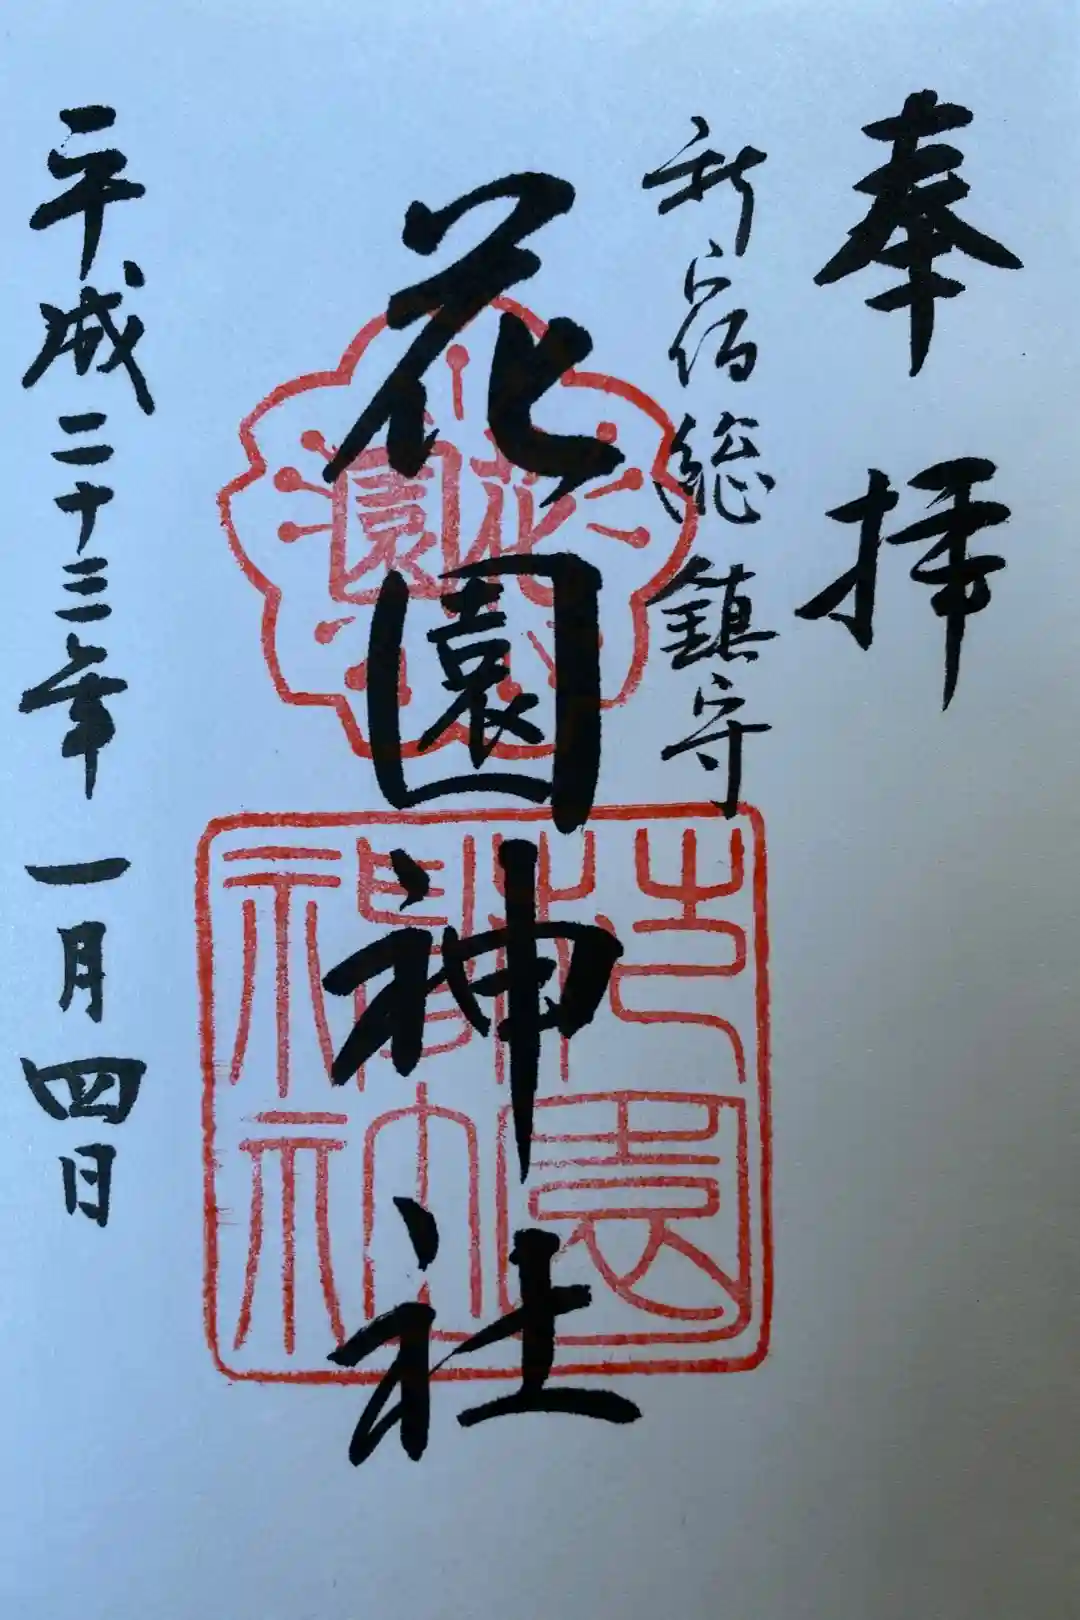 奉拝
新宿総鎮守
花園神社
花園
平成二十三年一月四日